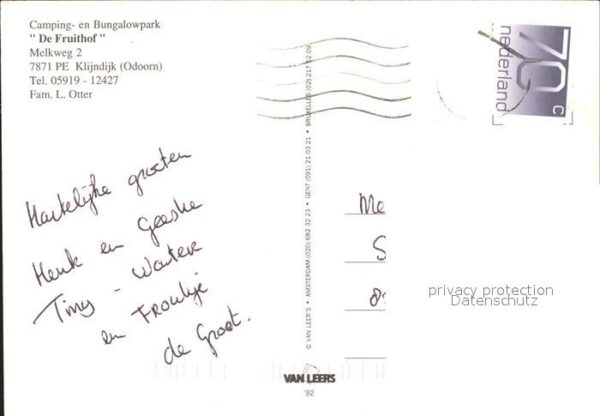 Camping- en Bungalowpark
" De Fruithof "
Melkweg 2
7871 PE Klijndijk (Odoorn)
Tel. 05919 - 12427
Fam. L. Otter
70 c
nederland
Hartelijke groeten
Henk en Geeske
Tiny - Wouter
en Froukje
de Groot.
© VAN LEER'S • AMSTERDAM (020) 682 32 23 • GENT (091) 21 03 21 • BRUXELLES (02) 217 32 09
Me
S
privacy protection
Datenschutz
VAN LEERS
'92